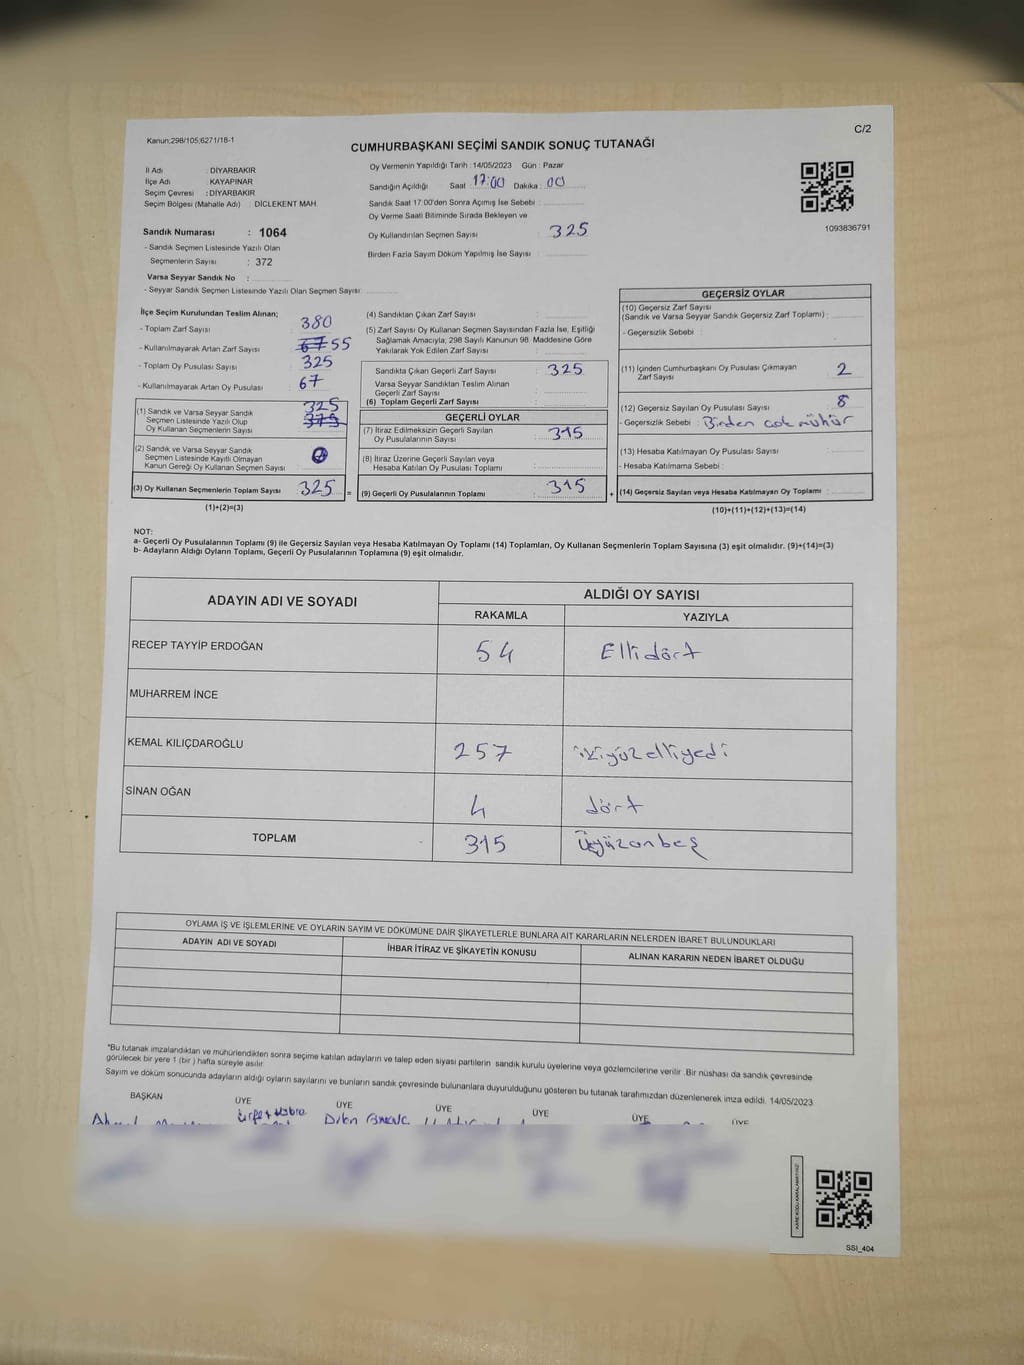 Kanun;298/105;6271/18-1
C/2
CUMHURBAŞKANI SEÇİMİ SANDIK SONUÇ TUTANAĞI
İl Adı : DİYARBAKIR
İlçe Adı : KAYAPINAR
Seçim Çevresi : DİYARBAKIR
Seçim Bölgesi (Mahalle Adı) : DİCLEKENT MAH.
Sandık Numarası : 1064
- Sandık Seçmen Listesinde Yazılı Olan
Seçmenlerin Sayısı : 372
Varsa Seyyar Sandık No :
- Seyyar Sandık Seçmen Listesinde Yazılı Olan Seçmen Sayısı:
Oy Vermenin Yapıldığı Tarih : 14/05/2023 Gün : Pazar
Sandığın Açıldığı Saat 17:00 Dakika : 00
Sandık Saat 17:00'den Sonra Açımış İse Sebebi :
Oy Verme Saati Bitiminde Sırada Bekleyen ve
Oy Kullandırılan Seçmen Sayısı : 325
Birden Fazla Sayım Döküm Yapılmış İse Sayısı :
1093836791
İlçe Seçim Kurulundan Teslim Alınan;
- Toplam Zarf Sayısı : 380
- Kullanılmayarak Artan Zarf Sayısı : 55
- Toplam Oy Pusulası Sayısı : 325
- Kullanılmayarak Artan Oy Pusulası : 67
(1) Sandık ve Varsa Seyyar Sandık
Seçmen Listesinde Yazılı Olup
Oy Kullanan Seçmenlerin Sayısı : 325
(2) Sandık ve Varsa Seyyar Sandık
Seçmen Listesinde Kayıtlı Olmayan
Kanun Gereği Oy Kullanan Seçmen Sayısı :
(3) Oy Kullanan Seçmenlerin Toplam Sayısı : 325 =
(1)+(2)=(3)
(4) Sandıktan Çıkan Zarf Sayısı :
(5) Zarf Sayısı Oy Kullanan Seçmen Sayısından Fazla İse, Eşitliği
Sağlamak Amacıyla; 298 Sayılı Kanunun 98. Maddesine Göre
Yakılarak Yok Edilen Zarf Sayısı :
Sandıkta Çıkan Geçerli Zarf Sayısı : 325
Varsa Seyyar Sandıktan Teslim Alınan
Geçerli Zarf Sayısı :
(6) Toplam Geçerli Zarf Sayısı :
GEÇERLİ OYLAR
(7) İtiraz Edilmeksizin Geçerli Sayılan
Oy Pusulalarının Sayısı : 315
(8) İtiraz Üzerine Geçerli Sayılan veya
Hesaba Katılan Oy Pusulası Toplamı :
(9) Geçerli Oy Pusulalarının Toplamı : 315 +
GEÇERSİZ OYLAR
(10) Geçersiz Zarf Sayısı
(Sandık ve Varsa Seyyar Sandık Geçersiz Zarf Toplamı) :
- Geçersizlik Sebebi :
(11) İçinden Cumhurbaşkanı Oy Pusulası Çıkmayan
Zarf Sayısı : 2
(12) Geçersiz Sayılan Oy Pusulası Sayısı : 8
- Geçersizlik Sebebi : Birden çok mühür
(13) Hesaba Katılmayan Oy Pusulası Sayısı :
- Hesaba Katılmama Sebebi :
(14) Geçersiz Sayılan veya Hesaba Katılmayan Oy Toplamı :
(10)+(11)+(12)+(13)=(14)
NOT:
a- Geçerli Oy Pusulalarının Toplamı (9) ile Geçersiz Sayılan veya Hesaba Katılmayan Oy Toplamı (14) Toplamları, Oy Kullanan Seçmenlerin Toplam Sayısına (3) eşit olmalıdır. (9)+(14)=(3)
b- Adayların Aldığı Oyların Toplamı, Geçerli Oy Pusulalarının Toplamına (9) eşit olmalıdır.
ADAYIN ADI VE SOYADI ALDIĞI OY SAYISI
RAKAMLA YAZIYLA
RECEP TAYYİP ERDOĞAN 54 Ellidört
MUHARREM İNCE
KEMAL KILIÇDAROĞLU 257 ikiyüzelliyedi
SİNAN OĞAN 4 dört
TOPLAM 315 Üçyüzonbeş
OYLAMA İŞ VE İŞLEMLERİNE VE OYLARIN SAYIM VE DÖKÜMÜNE DAİR ŞİKAYETLERLE BUNLARA AİT KARARLARIN NELERDEN İBARET BULUNDUKLARI
ADAYIN ADI VE SOYADI İHBAR İTİRAZ VE ŞİKAYETİN KONUSU ALINAN KARARIN NEDEN İBARET OLDUĞU
*Bu tutanak imzalandıktan ve mühürlendikten sonra seçime katılan adayların ve talep eden siyasi partilerin sandık kurulu üyelerine veya gözlemcilerine verilir .Bir nüshası da sandık çevresinde
görülecek bir yere 1 (bir ) hafta süreyle asılır.
Sayım ve döküm sonucunda adayların aldığı oyların sayılarını ve bunların sandık çevresinde bulunanlara duyurulduğunu gösteren bu tutanak tarafımızdan düzenlenerek imza edildi. 14/05/2023
BAŞKAN ÜYE ÜYE ÜYE ÜYE ÜYE ÜYE
SSI_404